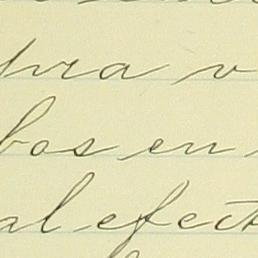 pra v
bos en
al efect